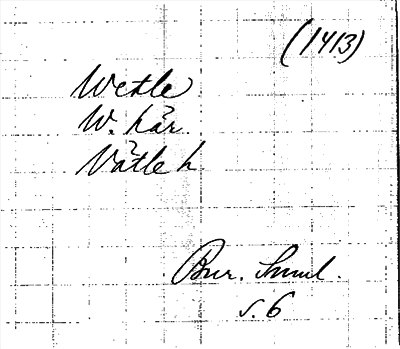 (1413)
Wetle
W. här.
Vätle h.
Bur. Smml.
s. 6